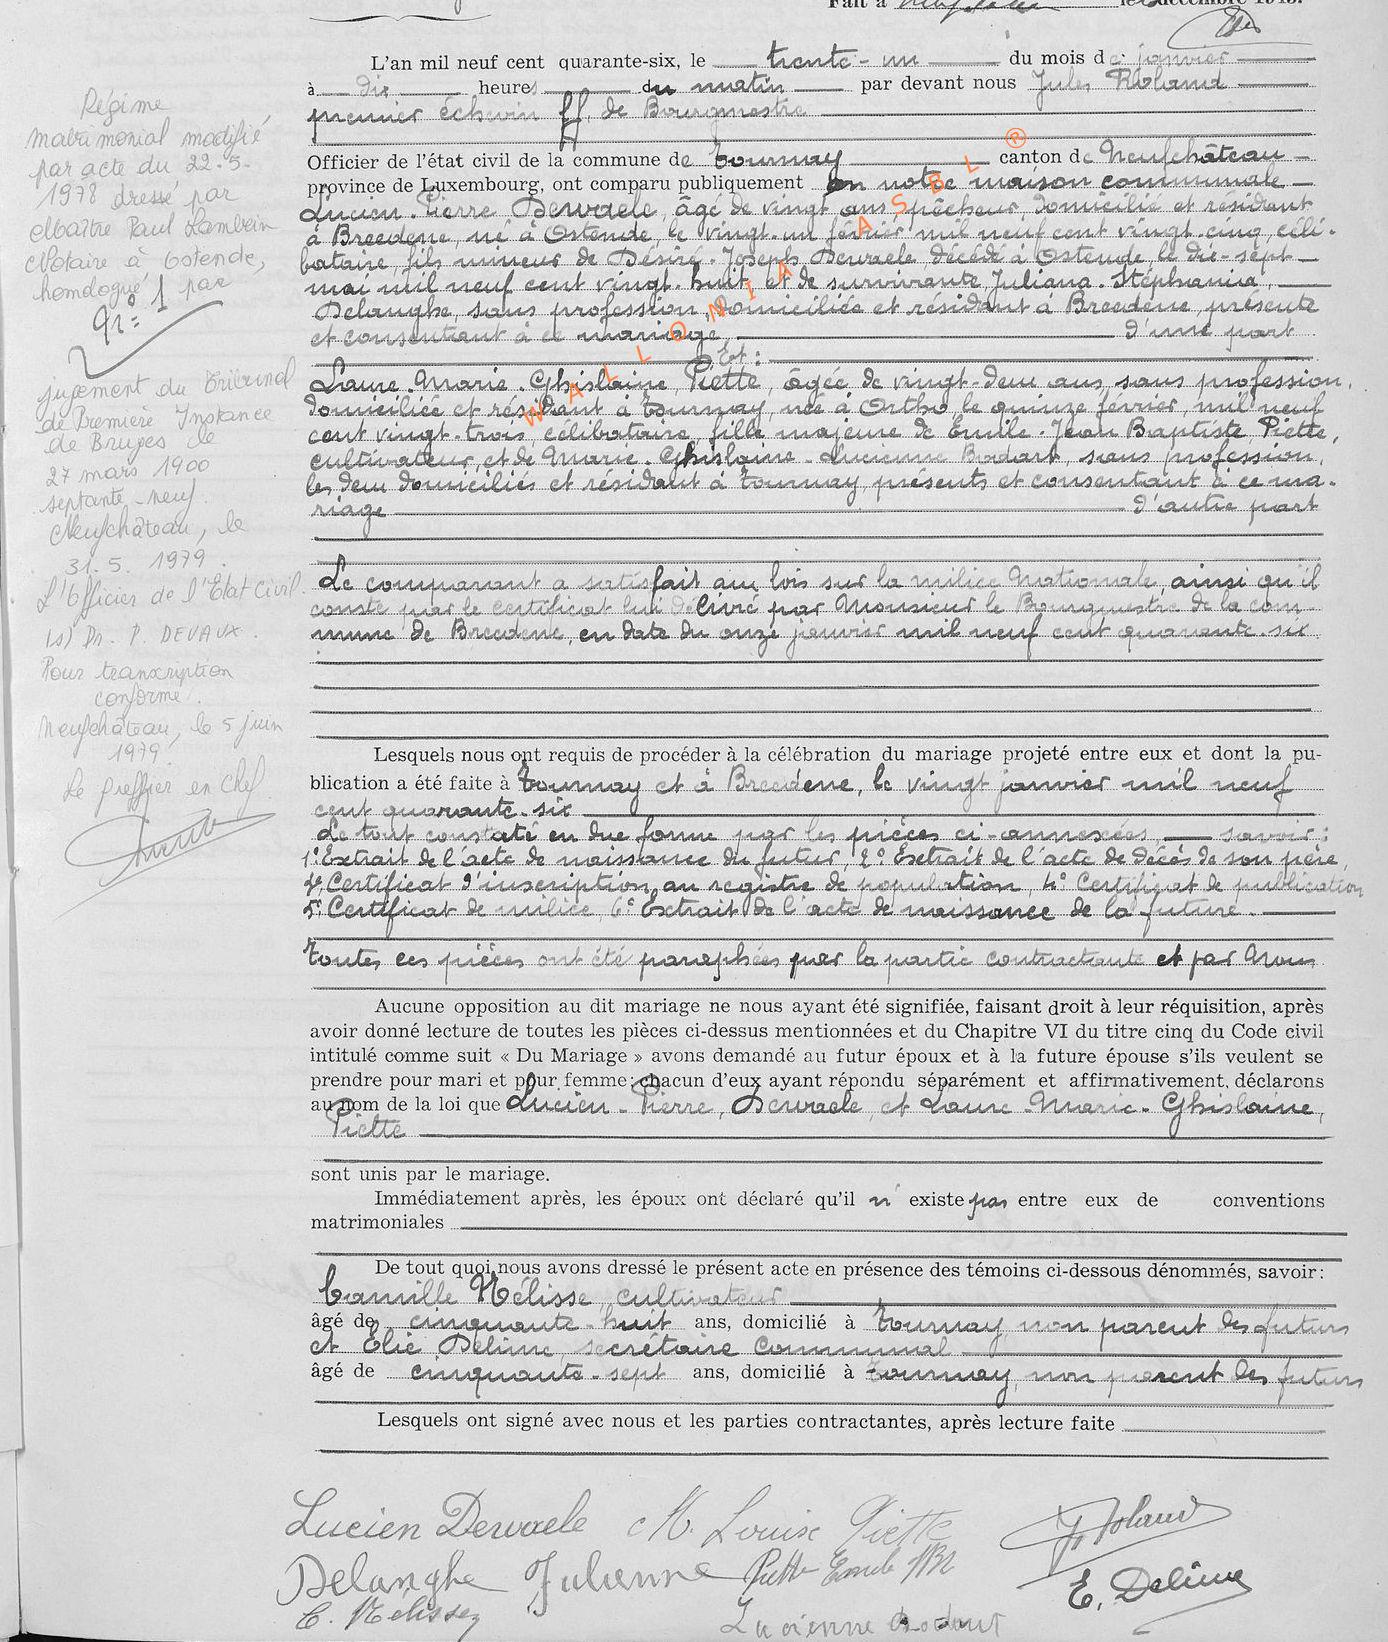 Fait à Neufchâteau le décembre 1945.
L'an mil neuf cent quarante-six, le trente-un du mois de janvier
à dix heures du matin par devant nous Jules Roland
premier échevin ff. de Bourgmestre
Officier de l'état civil de la commune de Tournay canton de Neufchâteau
province de Luxembourg, ont comparu publiquement en notre maison communale
Lucien-Pierre Dewaele, âgé de vingt ans, pêcheur, domicilié et résidant
à Breedene, né à Ostende, le vingt-un février mil neuf cent vingt-cinq, céli-
bataire, fils mineur de Désiré-Joseph Dewaele décédé à Ostende le dix-sept
mai mil neuf cent vingt-huit et de survivante Juliana-Stéphania,
Delanghe, sans profession, domiciliée et résidant à Breedene, présente
et consentant à ce mariage, d'une part
Et:
Laure-Marie-Ghislaine, Piette, âgée de vingt-deux ans, sans profession,
domiciliée et résidant à Tournay, née à Ortho le quinze février, mil neuf
cent vingt-trois, célibataire, fille majeure de Emile-Jean Baptiste, Piette,
cultivateur, et de Marie-Ghislaine-Lucienne Rodart, sans profession,
les deux domiciliés et résidant à Tournay, présents et consentant à ce ma-
riage d'autre part
Le comparant a satisfait aux lois sur la milice Nationale, ainsi qu'il
conste par le certificat lui délivré par Monsieur le Bourgmestre de la com-
mune de Breedene, en date du onze janvier mil neuf cent quarante-six
Lesquels nous ont requis de procéder à la célébration du mariage projeté entre eux et dont la pu-
blication a été faite à Tournay et à Breedene, le vingt janvier mil neuf
cent quarante-six
Le tout constaté en due forme par les pièces ci-annexées, savoir:
1° Extrait de l'acte de naissance du futur, 2° Extrait de l'acte de décès de son père,
3° Certificat d'inscription au registre de population, 4° Certificat de publication
5° Certificat de milice, 6° Extrait de l'acte de naissance de la future.
Toutes ces pièces ont été paraphées par la partie contractante et par Nous
Aucune opposition au dit mariage ne nous ayant été signifiée, faisant droit à leur réquisition, après
avoir donné lecture de toutes les pièces ci-dessus mentionnées et du Chapitre VI du titre cinq du Code civil
intitulé comme suit « Du Mariage » avons demandé au futur époux et à la future épouse s'ils veulent se
prendre pour mari et pour femme; chacun d'eux ayant répondu séparément et affirmativement, déclarons
au nom de la loi que Lucien-Pierre, Dewaele, et Laure-Marie-Ghislaine,
Piette
sont unis par le mariage.
Immédiatement après, les époux ont déclaré qu'il n'existe pas entre eux de conventions
matrimoniales
De tout quoi nous avons dressé le présent acte en présence des témoins ci-dessous dénommés, savoir:
Camille Mélisse, cultivateur
âgé de cinquante-huit ans, domicilié à Tournay, non parent des futurs
et Elie Delime, secrétaire communal
âgé de cinquante-sept ans, domicilié à Tournay, non parent des futurs
Lesquels ont signé avec nous et les parties contractantes, après lecture faite
Lucien Dewaele M. Louise Piette J. Roland
Delanghe Julienne Piette Emile JBt E. Delime
C. Mélisse
Lucienne Rodart
Régime
matrimonial modifié
par acte du 22-5-
1978 dressé par
Maître Paul Lambein
Notaire à Ostende,
homologué par
N° 1
jugement du Tribunal
de Première Instance
de Bruges le
27 mars 1900
septante-neuf.
Neufchâteau, le
31.5.1979.
L'Officier de l'Etat Civil.
(s) Ph. P. DEVAUX.
Pour transcription
conforme.
Neufchâteau, le 5 juin
1979.
Le greffier en chef
WALLONIA ASBL ®